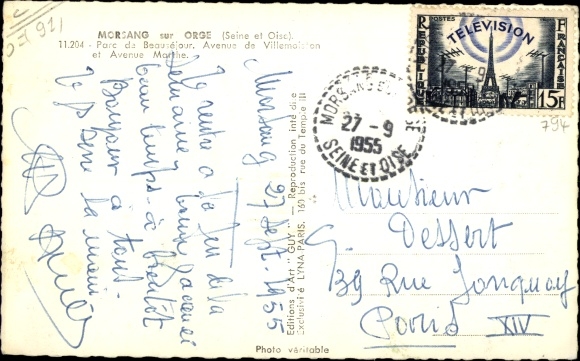 MORSANG sur ORGE (Seine et Oise)
11.204 - Parc de Beauséjour, Avenue de Villemoisson
et Avenue Marthe.
Morsang 27 Sept. 1955
Je rentre à la fin de la
semaine
beau temps - à bientôt
Bonjour à tous.
Je serre la main
Editions d'Art "GUY" — Reproduction interdite
Exclusivité LYNA-PARIS, 160 bis rue du Temple III
Photo véritable
POSTES
TÉLÉVISION
REPUBLIQUE
FRANÇAISE
15F
794
MORSANG
27-9
1955
SEINE ET OISE
Monsieur
G. Dessert
39 Rue Jonquoy
Paris XIV